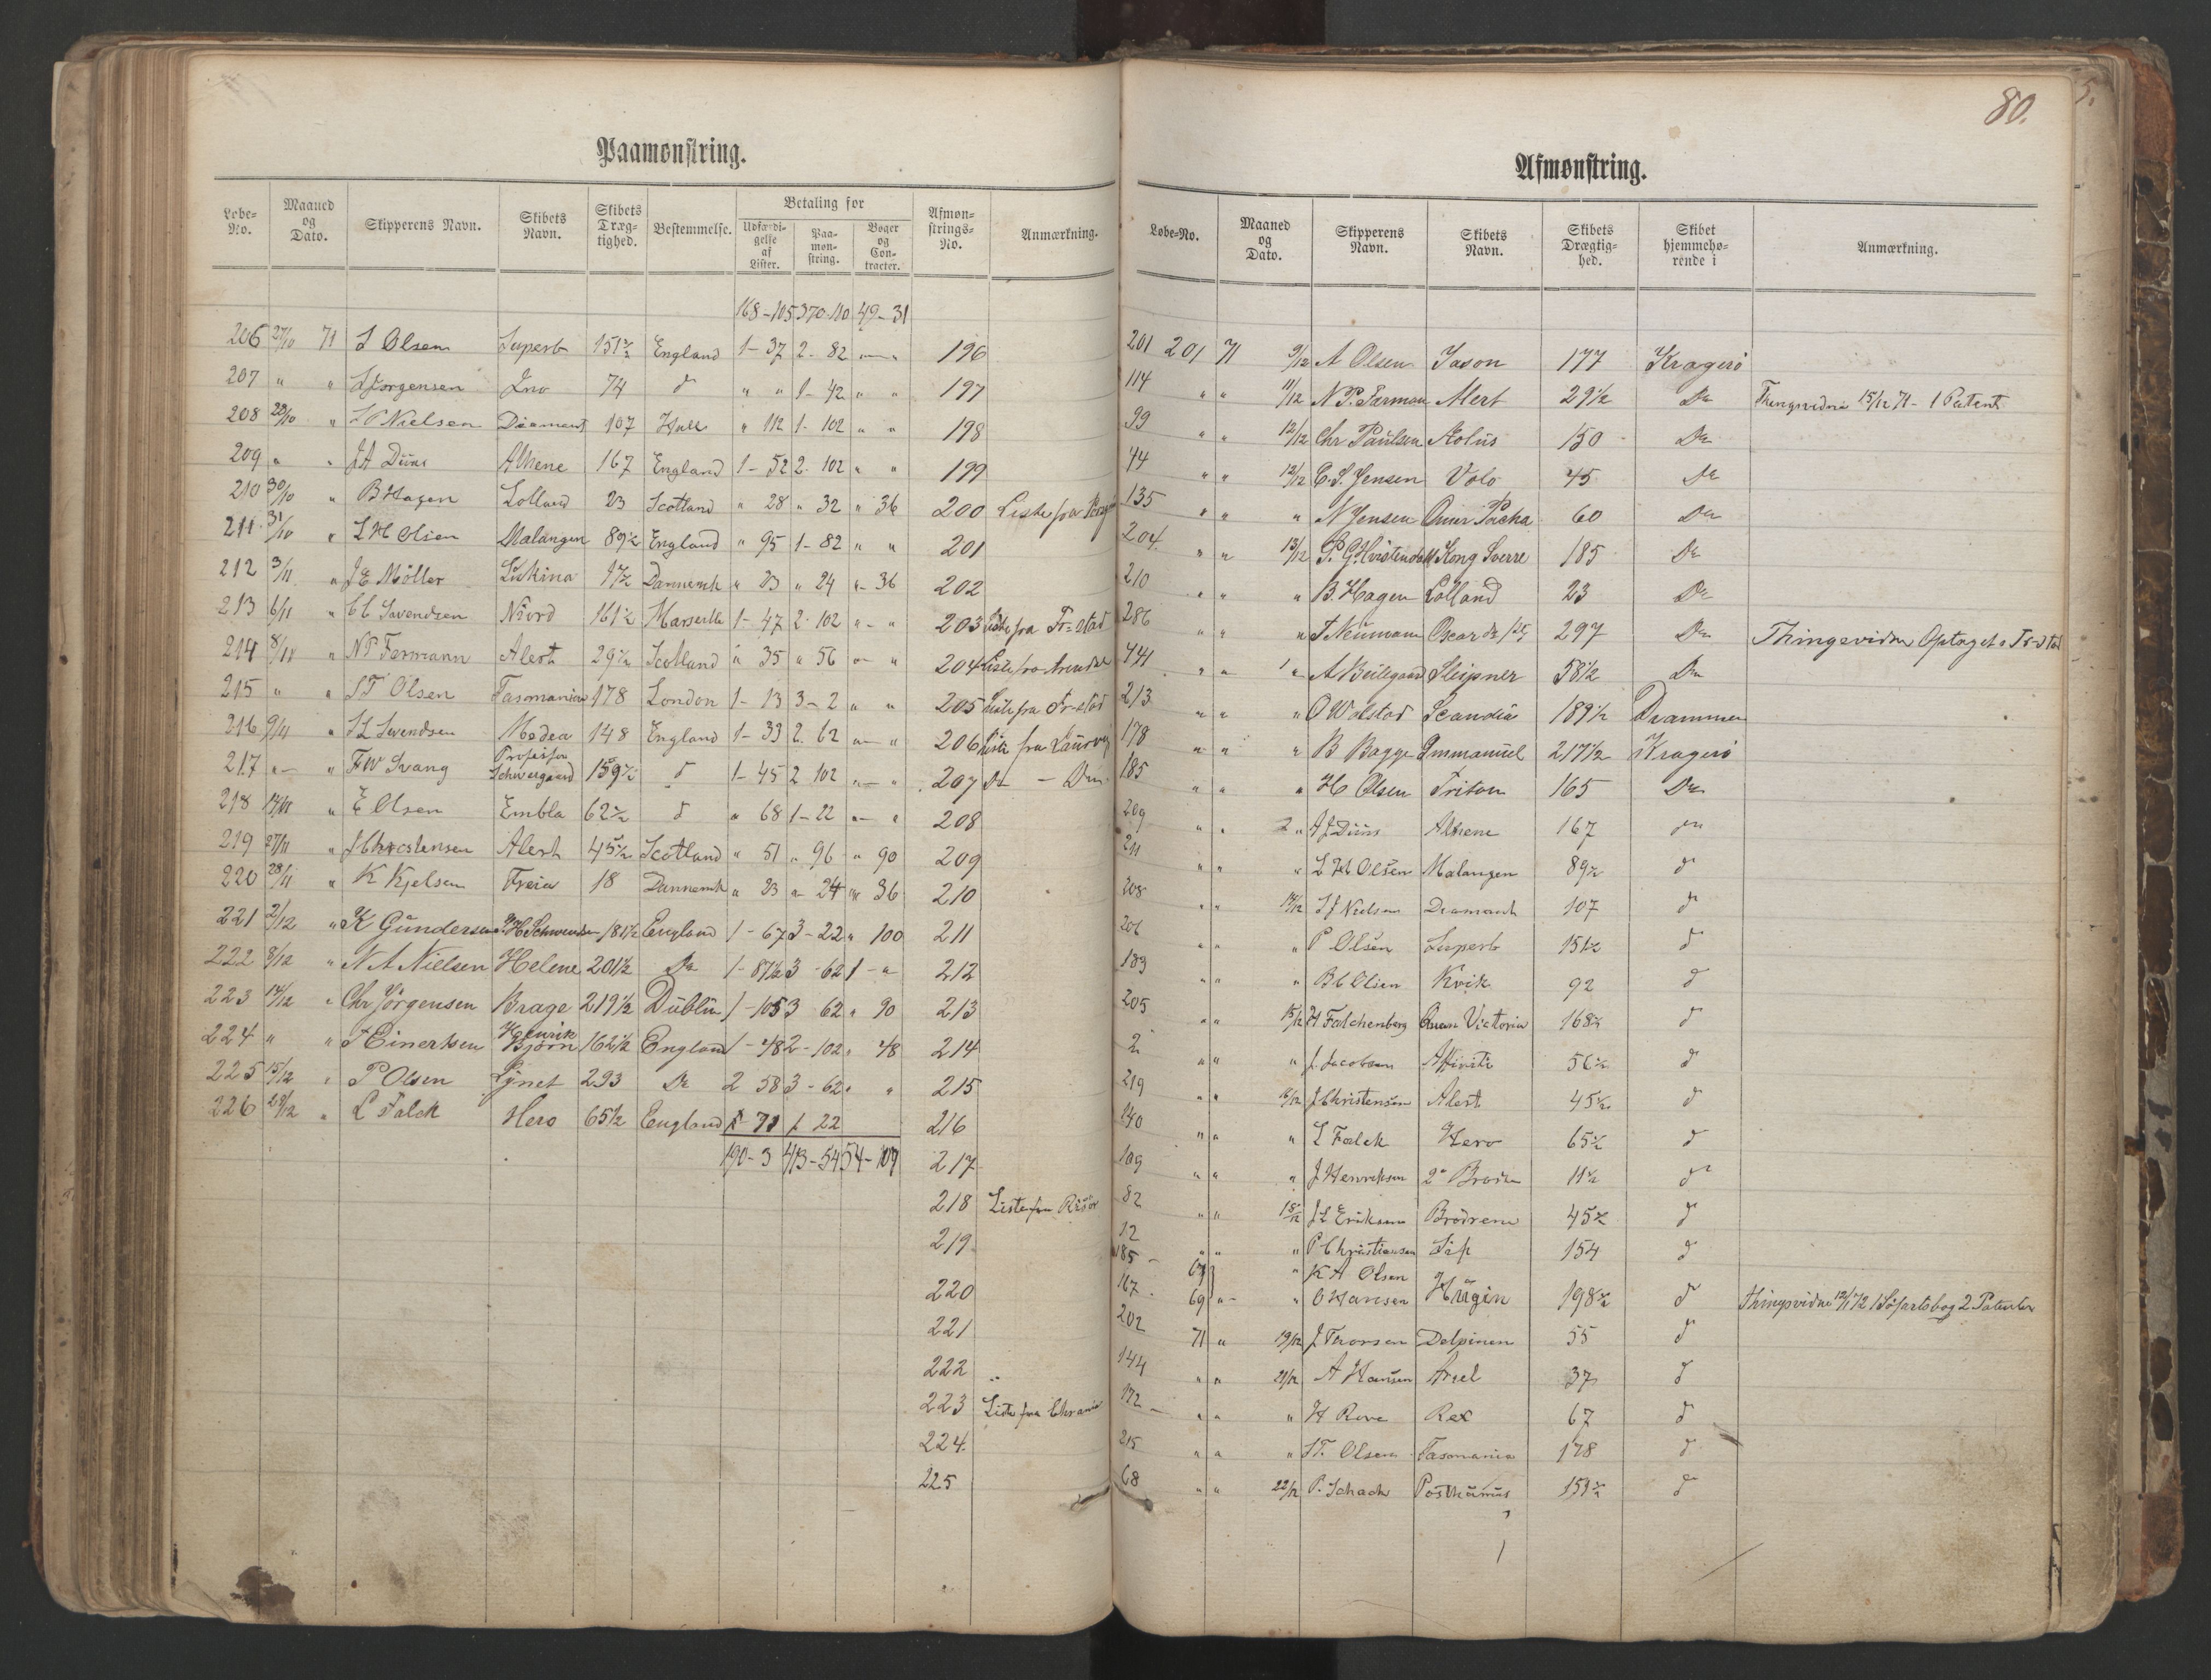 80.
Paamønstring.
Løbe-No. | Maaned og Dato. | Skipperens Navn. | Skibets Navn. | Skibets Dræg-tighed. | Bestemmelse. | Betaling for | Udfærdi-gelse af Lister. | Paa-møn-string. | Bøger og Con-tracter. | Afmøn-strings-No. | Anmærkning.
168-105 370-110 49-31
206 27/10 71 S Olsen Superb 151½ England 1-37 2-82 "-" 196
207 " " Jorgensen Ino 74 d " " 1-42 " " 197
208 28/10 " Nielsen Diamant 107 Hull " 112 1-102 " " 198
209 " " JA Duus Athene 167 England 1-52 2-102 " " 199
210 30/10 " B Hagen Lolland 23 Scotland " 28 " 32 " 36 200 Liste fra
211 31/10 " L H Olsen Malangen 89½ England " 95 1-82 " " 201
212 3/11 " J E Möller Lukina 17½ Dannemk " 23 " 24 "-36 202
213 6/11 " Svendsen Niord 161½ Marseille 1-47 2-102 "-" 203 Liste fra Fr-stad
214 8/11 " NP Fermann Alert 29½ Scotland " 35 " 56 "-" 204 Liste fra Arendal
215 " " ST Olsen Tasmania 178 London 1-13 3-2 " " 205 Liste fra Fr-stad
216 9/11 " Svendsen Medea 148 England 1-33 2-62 "-" 206 Liste fra Laurvig
217 "- " FW Svang Professor Schweigaard 159½ d 1-45 2 102 "-" 207 Dr.
218 " E Olsen Embla 62½ d " 68 1-22 "-" 208
219 27/11 " J Christensen Alert 45½ Scotland " 51 " 96 " 90 209
220 28/11 " K Kjelsen Freia 18 Dannemk " 23 "-24 " 36 210
221 2/12 " K Gundersen Schwensen 181½ England 1-67 3-22 " 100 211
222 8/12 " N A Nielsen Helene 201½ Do 1-87½ 3-62 1-" 212
223 14/12 " Chr Jörgensen Brage 219½ Dublin 1-105 3 62 " 90 213
224 " " Einertsen Henrik Bjørn 162½ England 1-48 2-102 " 48 214
225 15/12 " P Olsen Lynet 293 Do 2 58 3-62 " " 215
226 " L Falck Hero 65½ England 71 1 22 216
190-3 413-54 54-109 217
218 Liste fra Risör
219
220
221
222 "
223 Liste fra Chrania
224
225
Afmønstring.
Løbe-No. | Maaned og Dato. | Skipperens Navn. | Skibets Navn. | Skibets Drægtig-hed. | Skibet hjemmehø-rende i | Anmærkning.
201 201 71 9/12 A Olsen Jason 177 Kragerö
114 " " 11/12 N P. Farman Alert 29½ Do Thingsvidne 15/12 71 - 1 Patent
99 " " 12/12 Chr Paulsen Aolus 150 Do
44 " " 12/12 C. S. Jensen Volo 45 Do
135 " " " N Jensen Omer Pacha 60 Do
204 " " 13/12 Hvistendahl Kong Sverre 185 Do
210 " " " B. Hagen Lolland 23 Do
286 " " " Neumann Oscar 297 Do Thingevidne Optaget i Fr-stad
441 " " " A Beilegaard Sleipner 58½ Do
213 " " " O Wolstad Scandia 189½ Drammen
178 " " " B Bagge Immanuel 217½ Kragerö
185 " " " H Olsen Triton 165 Do
209 " " 2 " A J Duus Athene 167 Do
211 " " " L H Olsen Malangen 89½ d
208 " " 14/12 Nielsen Diamant 107 d
206 " " " P Olsen Superb 151½ d
189 " " " B C Olsen Kvik 92 d
205 " " 15/12 H Falchenberg Queen Victoria 168½ d
2 " " " J. Jacobsen 56½ d
219 " " 16/12 J Christensen Alert 45½ d
140 " " " L Falck Hero 65½ d
109 " " " J Henriksen 2de Brödre 11½ d
82 " " 18/12 J L Eriksen Brödrene 45½ d
12 " " " P Christiansen 154 d
185 - 69 " K A Olsen
167 - 69 "- " O Hansen Hugin 198½ d Thingsvidne 12/1 72 1 Söfartsbog 2 Patenter
202 71 " 19/12 J Thorsen Delpinen 55 d
144 " " 21/12 A Hansen Ariel 37 d
172 - " " " H Rove Rex 67 d
215 " " " ST. Olsen Tasmania 178 d
68 " " 22/12 P. Schack Posthumus 151½ d